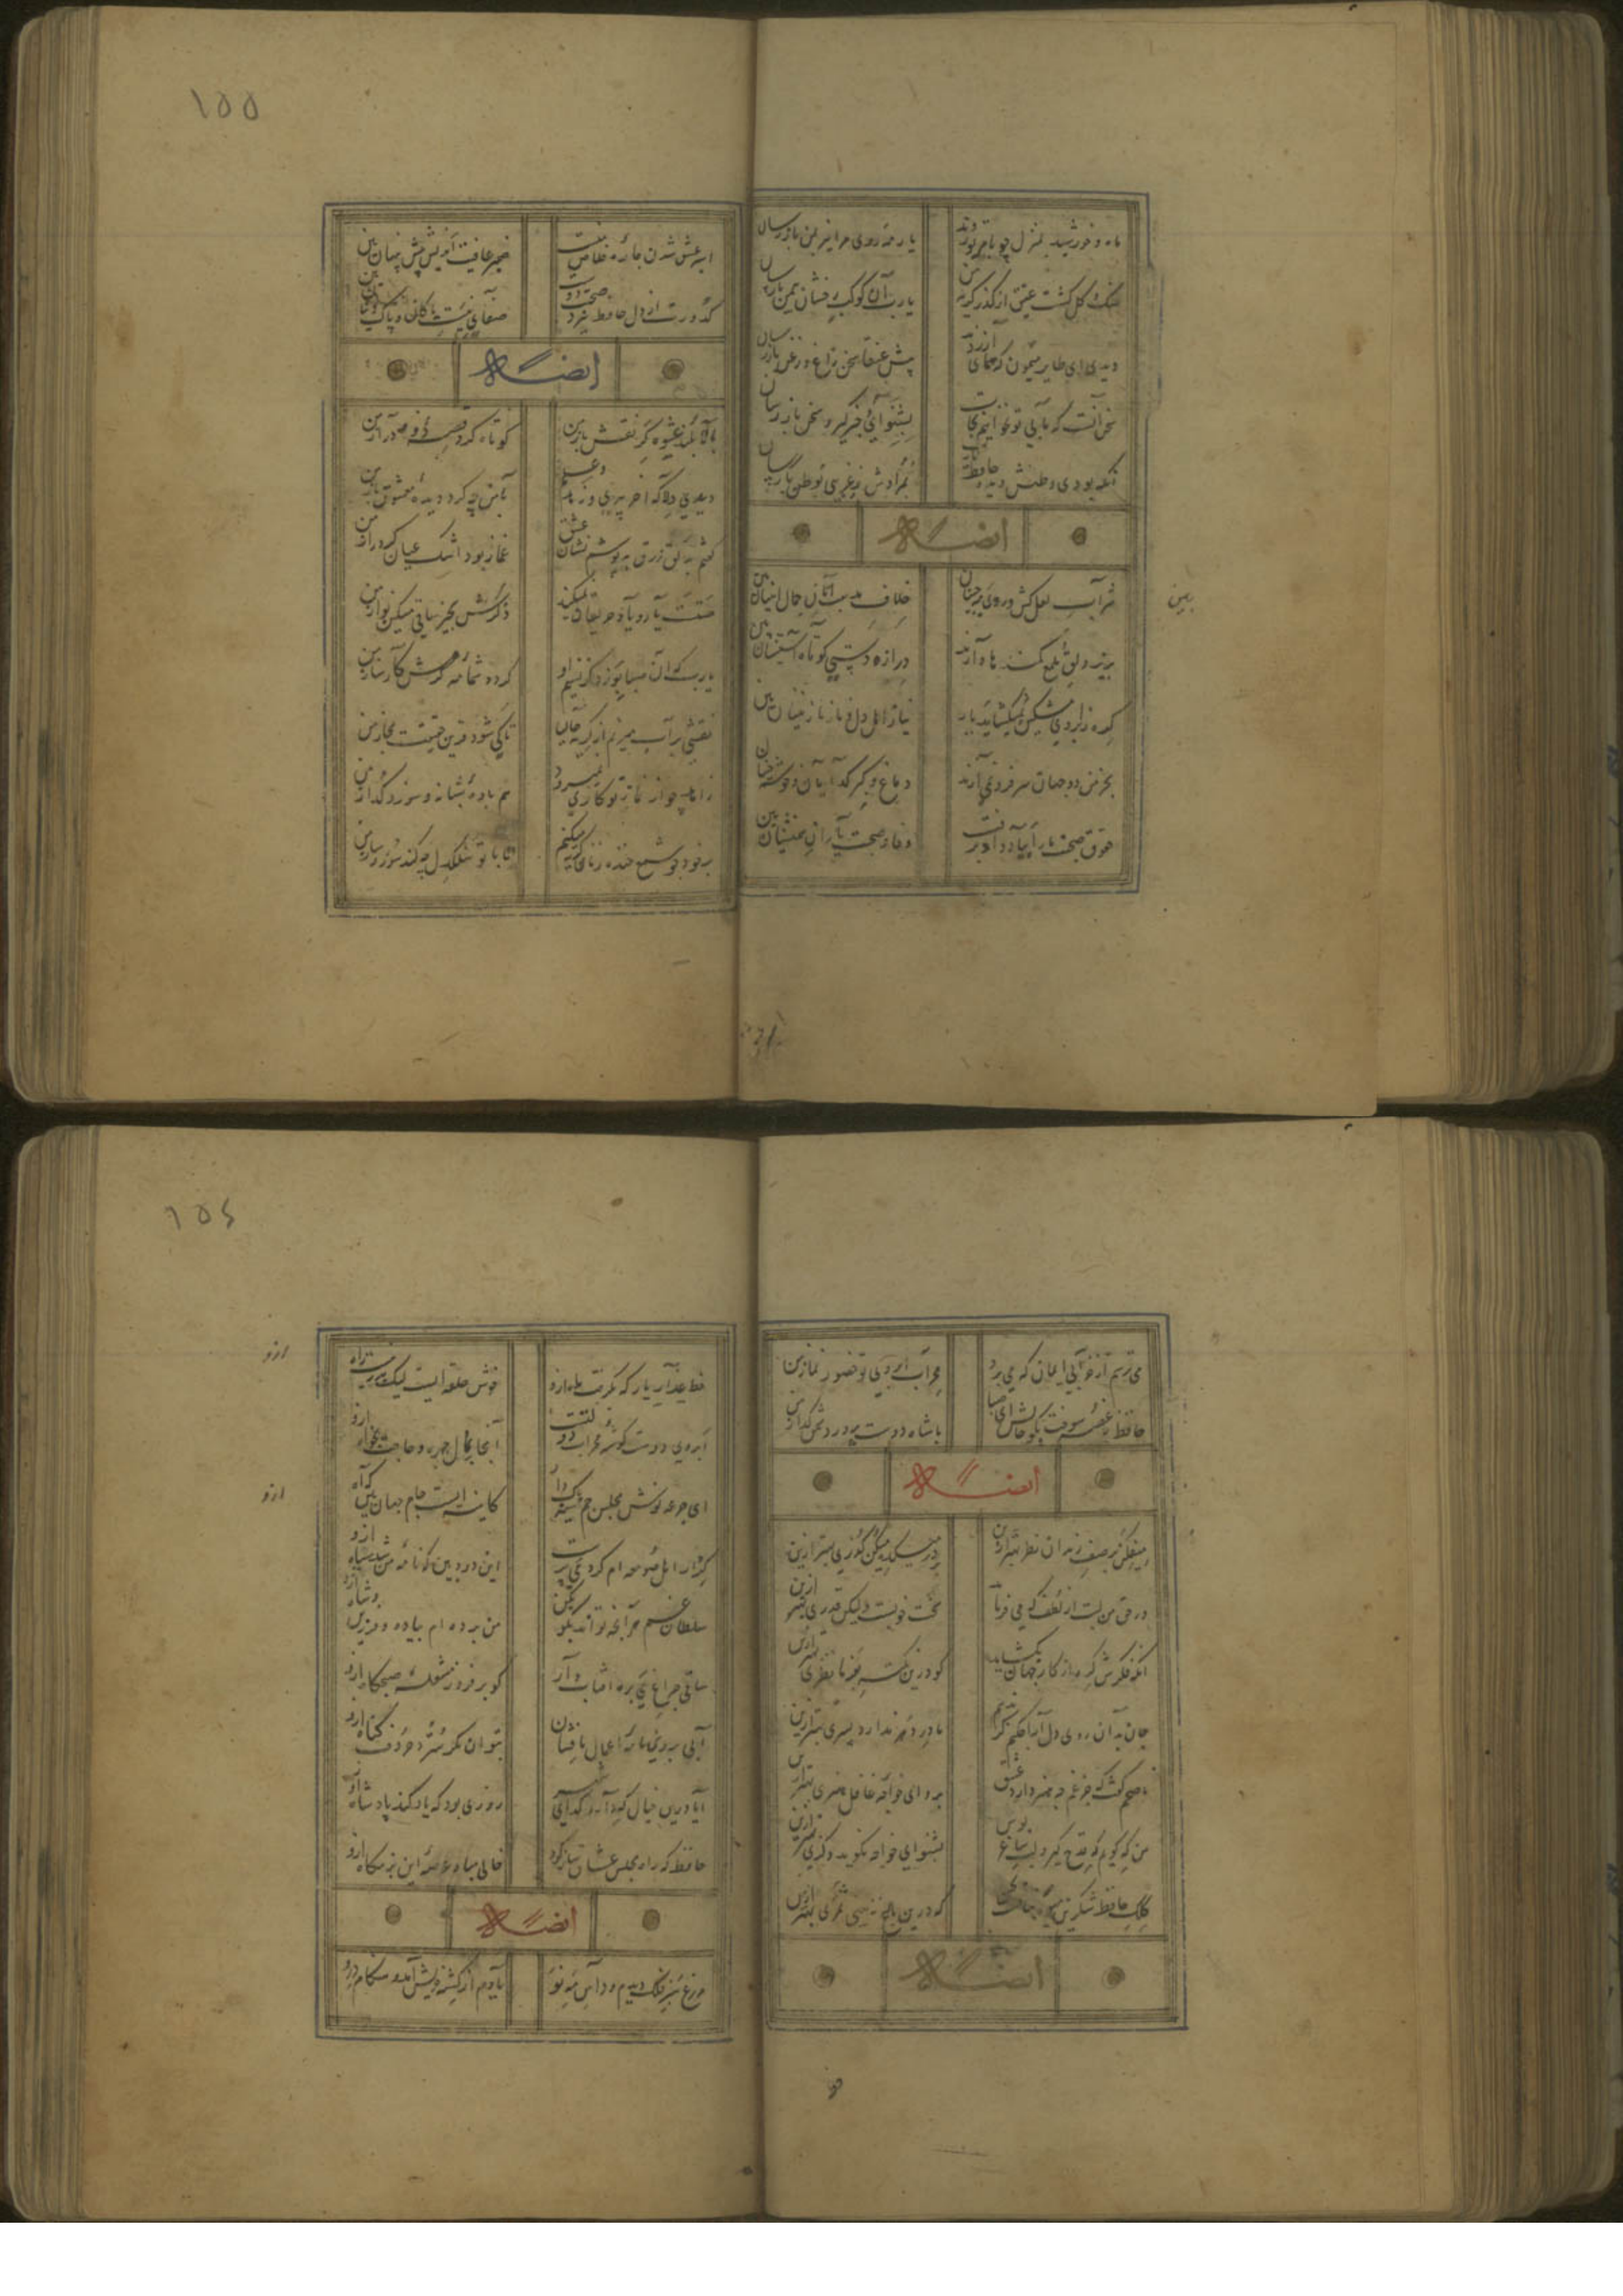 ۱۵۵
ماه و خورشید بمنزل چو بامر تو رسند
یار مه روی مرا نیز بمن باز رسان
سنگ و گل گشت عقیق از گذر گریه من
یارب آن کوکب رخشان بیمن باز رسان
دیدی ای طایر میمون که همای آزرد
پیش عنقا سخن زاغ و زغن باز رسان
سخن آنست که ما بی تو نخواهیم حیات
بشنو ای خبرگیر و سخن باز رسان
آنکه بودی وطنش دیده حافظ یارب
بمرادش ز غریبی بوطن باز رسان
ایضاً له
شراب لعل کش و روی مه جبینان
خلاف مذهب آنان جمال اینان بین
بزیر دلق ملمع کمندها دارند
درازدستی کوته آستینان بین
گره ز ابروی مشکین نمیگشاید یار
نیاز اهل دل و ناز نازنینان بین
بخرمن دو جهان سر فرو نمی آرند
دماغ و کبر گدایان و خوشه چینان
حقوق صحبت ما را بباد داد و برفت
وفا و صحبت یاران همنشینان بین
بین
اسیر عشق شدن چاره خلاص منست
ضمیر عاقبت اندیش پیش بینان بین
کدورت از دل حافظ ببرد صحبت دوست
صفای نیت پاکان و پاک دینان بین
ایضاً له
بالابلند عشوه گر نقش باز من
کوتاه کرد قصه زهد دراز من
دیدی دلا که آخر پیری و زهد و علم
با من چه کرد دیده معشوق باز من
گفتم بدلق زرق بپوشم نشان عشق
غماز بود اشک عیان کرد راز من
مستست یار و یاد حریفان نمیکند
ذکرش بخیر ساقی مسکین نواز من
یارب که آن صبا بوزد کز نسیم او
گردد شمامه کرمش کارساز من
نقشی بر آب میزنم از گریه حالیا
تا کی شود قرین حقیقت مجاز من
زاهد چو از نماز تو کاری نمیرود
هم باده شبانه و سوز و گداز من
بر خود چو شمع خنده زنان گریه میکنم
تا با تو سنگدل چه کند سوز و ساز من
۱۵۶
می ترسم از خرابی ایمان که می برد
محراب ابروی تو حضور نماز من
حافظ ز غصه سوخت بگو حالش ای صبا
با شاه دوست پرور دشمن گداز من
ایضاً له
میفکن بر صف رندان نظری بهتر ازین
بر در میکده میکن گذری بهتر ازین
در حق من لبت از لطف که می فرماید
سخت خوبست ولیکن قدری بهتر ازین
آنکه فکرش گره از کار جهان بگشاید
گو درین نکته بفرما نظری بهتر ازین
دل بدان رود گرامی چه کنم گر ندهم
مادر دهر ندارد پسری بهتر ازین
ناصحم گفت که جز غم چه هنر دارد عشق
برو ای خواجه عاقل هنری بهتر ازین
من که گویم که قدح گیر و لب ساغر بوس
بشنو ای خواجه نگوید دگری بهتر ازین
کلک حافظ شکرین میوه نباتیست
که درین باغ نبینی ثمری بهتر ازین
ایضاً له
خط عذار یار که بگرفت ماه ازو
خوش حلقه ایست لیک بدر نیست راه ازو
ابروی دوست گوشه محراب دولتست
آنجا بمال چهره و حاجت بخواه ازو
ای جرعه نوش مجلس جم سینه پاک دار
کایینه ایست جام جهان بین که آه ازو
کردار اهل صومعه ام کرد می پرست
این دود بین که نامه من شد سیاه ازو
سلطان غم هر آنچه تواند بگو بکن
من برده ام بباده فروشان پناه ازو
ساقی چراغ می بره آفتاب دار
گو برفروز مشعله صبحگاه ازو
آبی بروزنامه اعمال ما فشان
بتوان مگر سترد حروف گناه ازو
آیا درین خیال که دارد گدای شهر
روزی بود که یاد کند پادشاه ازو
حافظ که راه مجلس عشاق ساز کرد
خالی مباد عرصه این بزمگاه ازو
ازو
ازو
ایضاً له
مزرع سبز فلک دیدم و داس مه نو
یادم از کشته خویش آمد و هنگام درو